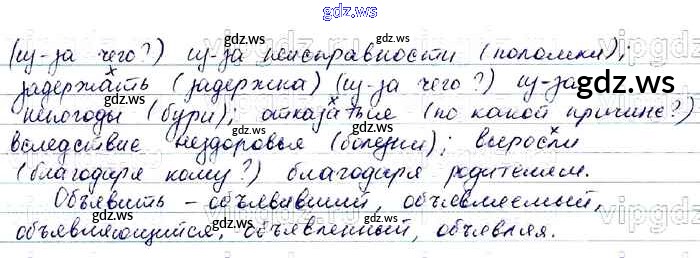 gdz.ws
(из-за чего?) из-за неисправности (поломки);
задержать (задержка) (из-за чего?) из-за
непогоды (бури); отказаться (по какой причине?)
вследствие нездоровья (болезни); выросли
(благодаря кому?) благодаря родителям.
Объявить – объявивший, объявляемый,
объявляющийся, объявленный, объявляя.